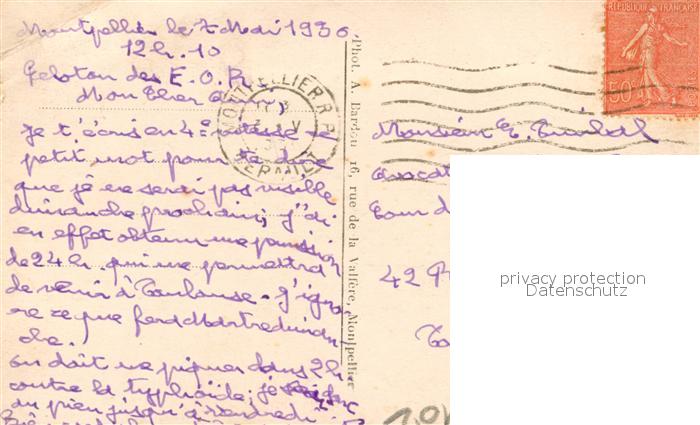 Montpellier le 7 Mai 1930.
12h. 10
Peloton des E.O.R
Mon cher
Je t'écris en 4e vitesse un
petit mot pour te dire
que je ne serai pas visible
dimanche prochain; j'ai
en effet obtenu une permission
de 24h qui me permettra
de venir à Toulouse. J'igno
re ce que fera Martre diman
che.
on doit me piquer dans 2h
contre la typhoïde; je
au pieu jusqu'à vendredi
Phot. A. Bardou 16, rue de la Valfère, Montpellier
MONTPELLIER R.P.
REPUBLIQUE FRANÇAISE
50c
Monsieur E.
Avocat
Cour d
42 R
To
privacy protection
Datenschutz